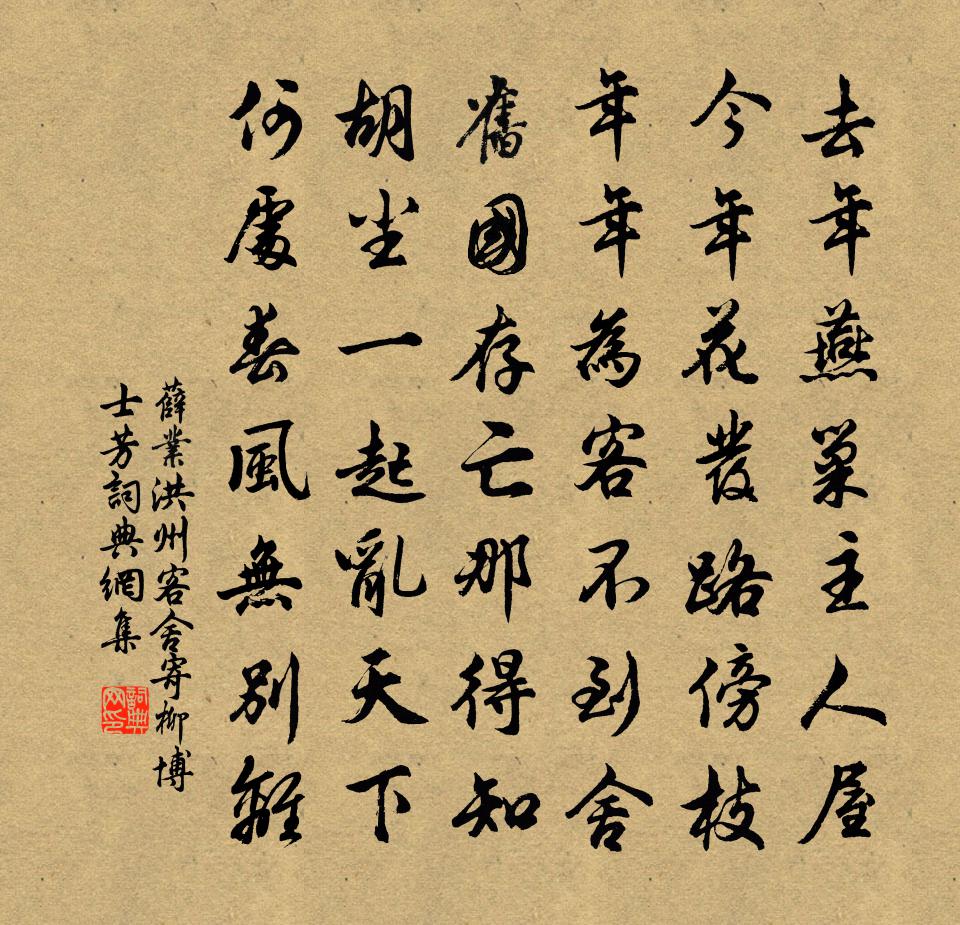 去年燕巢主人屋
今年花發路傍枝
年年為客不到舍
舊國存亡那得知
胡尘一起亂天下
何處春風無別離
薛業洪州客舍寄柳博
士芳詞典網集
詞典
网印